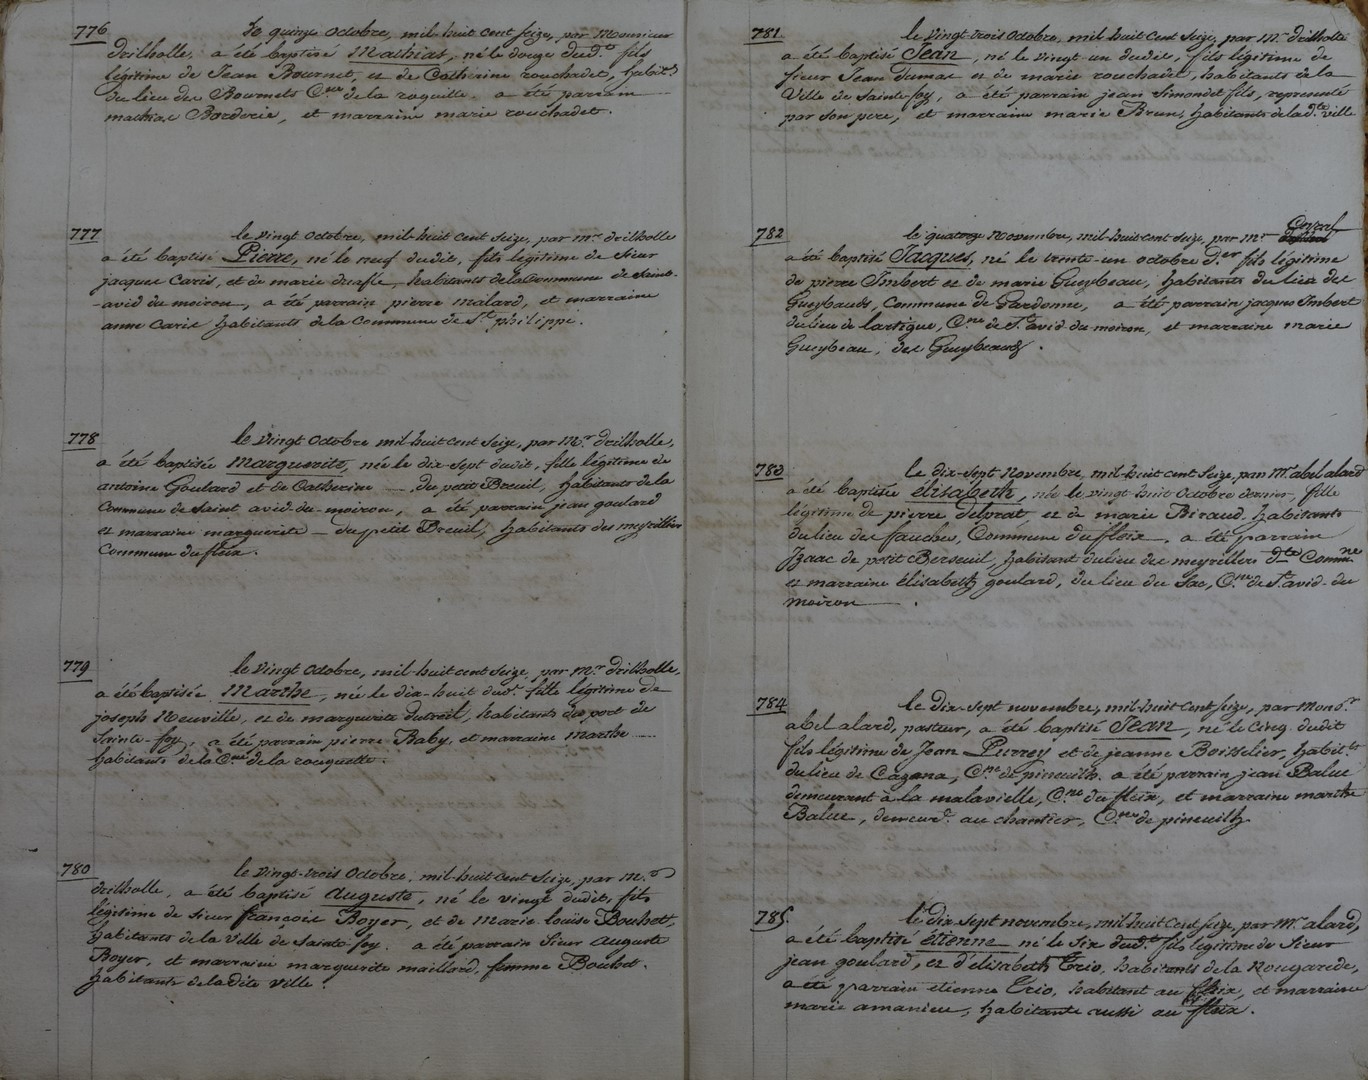 776
Le quinze Octobre, mil-huit cent Seize, par Monsieur
drilholle, a été baptisé Mathias, né le douze dud.t fils
légitime de Jean Bournet, et de Catherine rouchadet, habit.ts
du lieu des Bournets C.ne de la roquille. a été parrain
mathias Borderie, et marraine marie rouchadet.
777
le vingt Octobre, mil-huit cent Seize, par m.r drilholle
a été baptisé Pierre, né le neuf dudit, fils légitime de Sieur
jacques Carié, et de marie habitants de la Commune de Saint-
-avid du moiron, a été parrain pierre malard, et marraine
anne carié habitants de la Commune de S.t philippe.
778
le vingt Octobre mil-huit cent Seize, par M.r drilholle,
a été baptisée marguerite, née le dix-Sept dudit, fille légitime de
antoine Goulard et de Catherine — du petit Breuil, habitants de la
Commune de Saint avid-du-moiron, a été parrain jean goulard
et marraine marguerite — du petit Breuil, habitants des meyrilliers
Commune du fleix.
779
le vingt Octobre, mil-huit cent Seize, par M.r drilholle,
a été baptisée Marthe, née le dix-huit dud.t fille légitime de
joseph Neuville, et de marguerite dutreil, habitants du port de
Sainte-foy, a été parrain pierre Baby, et marraine marthe
habitants de la C.ne de la rouquette.
780
le vingt-trois Octobre, mil-huit cent Seize, par M.r
drilholle, a été baptisé auguste, né le vingt dudit, fils
légitime de Sieur françois Boyer, et de Marie louise Bouhet,
habitants de la ville de Sainte-foy. a été parrain Sieur auguste
Boyer, et marraine marguerite maillard, femme Bouhet.
habitants de la dite ville.
781
le vingt-trois Octobre, mil-huit Cent Seize, par M.r drilholle
a été baptisé Jean, né le vingt un dudit, fils légitime de
Sieur Jean Dumas et de marie rouchadet, habitants de la
Ville de Sainte-foy, a été parrain jean Simondet fils, représenté
par son pere, et marraine marie Brun, habitants de la d.te ville
782
le quatorze Novembre, mil-huit cent Seize, par M.r
a été baptisé Jacques, né le trente-un octobre d.er fils légitime
de pierre Imbert et de marie Guybeau, habitants du lieu des
Guybauds, Commune de Gardonne, a été parrain jacques Imbert
du lieu de lartique, C.ne de S.t avid du moiron, et marraine marie
Guybeau, des Guybeauds.
783
le dix-Sept Novembre, mil-huit cent Seize, par M.r abel alard
a été baptisée élisabeth, née le vingt-huit Octobre dernier, fille
légitime de pierre delprat, et de marie Biraud, habitants
du lieu des fauches, Commune du fleix. a été parrain
Izaac de petit Berseuil, habitant du lieu des meyrillers d.te Comm.ne
et marraine élisabeth goulard, du lieu du Sac, C.ne de S.t avid-du-
moiron.
784
le dix-Sept novembre, mil-huit cent Seize, par Mons.r
abel alard, pasteur, a été baptisé Jean, né le Cinq dudit
fils légitime de Jean Purrey et de jeanne Boisselier, habit.ts
du lieu de Cazana, C.ne de pineuilh. a été parrain jean Balue
demeurant à la malavielle, C.ne du fleix, et marraine marthe
Balue, demeur.t au chantier, C.ne de pineuilh.
785
le dix Sept novembre, mil-huit Cent Seize, par M.r alard,
a été baptisé étienne né le Six dud.t fils légitime de Sieur
jean goulard, et d'élisabeth Trio, habitants de la Rougarede,
a été parrain etienne Trio, habitant au fleix, et marraine
marie amanieu, habitante aussi au fleix.